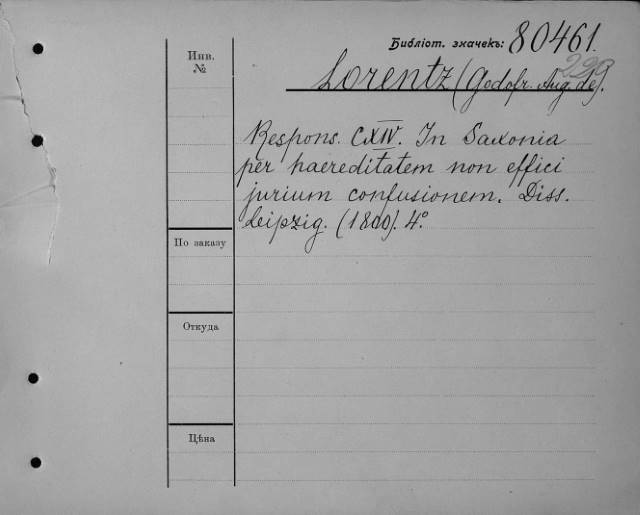 Библіот. значекъ: 80461.
223
Lorentz (Godofr. Aug. de).
Инв.
№
Respons. CXIV. In Saxonia
per haereditatem non effici
jurium confusionem. Diss.
Leipzig. (1800). 4°
По заказу
Откуда
Цѣна